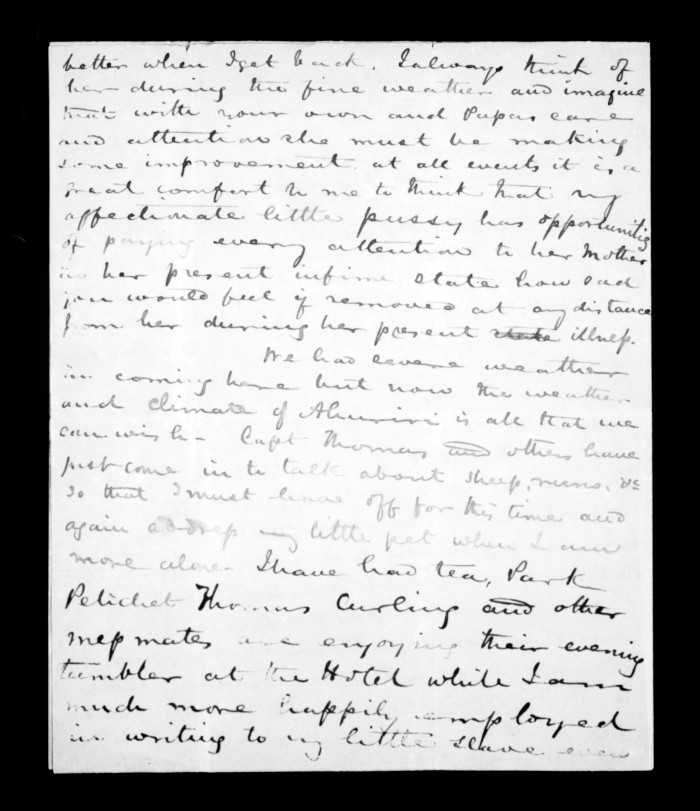 better when I get back. I always think of
her during the fine weather and imagine
that with your own and Papas care
and attention she must be making
some improvement at all events it is a
great comfort to me to think that my
affectionate little pussy has opportunities
of paying every attention to her Mother
in her present infirm state how sad
you would feel if removed at any distance
from her during her present state illness.
We had severe weather
in coming here but now the weather
and climate of Ahuriri is all that we
can wish - Capt Thomas and others have
just come in to talk about sheep, runs, &c
so that I must leave off for this time and
again address my little pet when I am
more alone - I have had tea, Park
Petichet Thomas Curling and other
messmates are enjoying their evening
tumbler at the Hotel while I am
much more happily employed
in writing to my little slave even